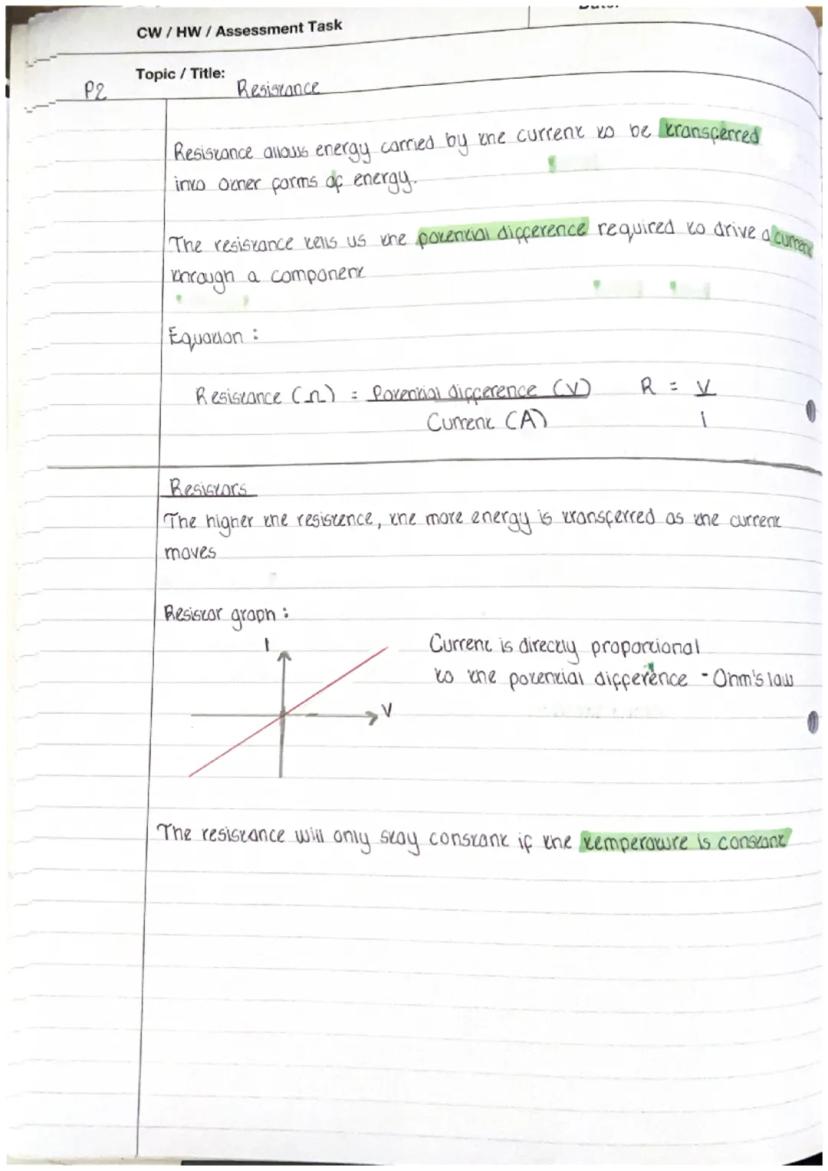 CW / HW / Assessment Task
P2 Topic / Title: Resistance
Resistance allows energy carried by the current to be transferred
into other forms of energy.
The resistance tells us the potential difference required to drive a current
through a component
Equation :
Resistance (Ω) = Potential difference (V) R = V
Current (A) I
Resistors
The higher the resistence, the more energy is transferred as the current
moves
Resistor graph :
I
Current is directly proportional
to the potential difference - Ohm's law
V
The resistance will only stay constant if the temperature is constant